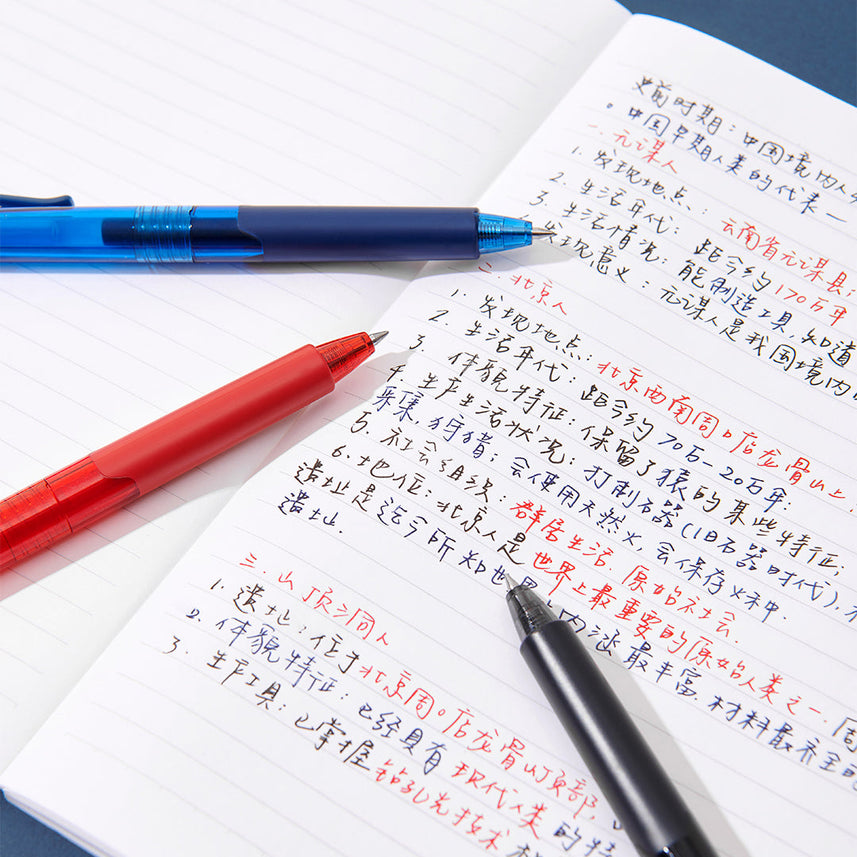 史前时期：中国境内人
。中国早期人类的代表一
一.元谋人
1. 发现地点：云南省元谋县；
2. 生活年代：距今约170万年
3. 生活情况：能制造工具，知道
发现意义：元谋人是我国境内
二.北京人
1. 发现地点：北京西南周口店龙骨山上.
2. 生活年代：距今约70万-20万年；
3. 体貌特征：保留了猿的某些特征；
4. 生产生活状况：打制石器（旧石器时代），
采集，狩猎；会使用天然火，会保存火种.
5. 社会组织：群居生活，原始社会.
6. 地位：北京人是世界上最重要的原始人类之一.
遗址是迄今所知世界 内涵最丰富，材料最齐全的
遗址.
三.山顶洞人
1. 遗址：位于北京周口店龙骨山顶部，
2. 体貌特征：已经具有现代人类的特
3. 生产工具：已掌握钻孔技术